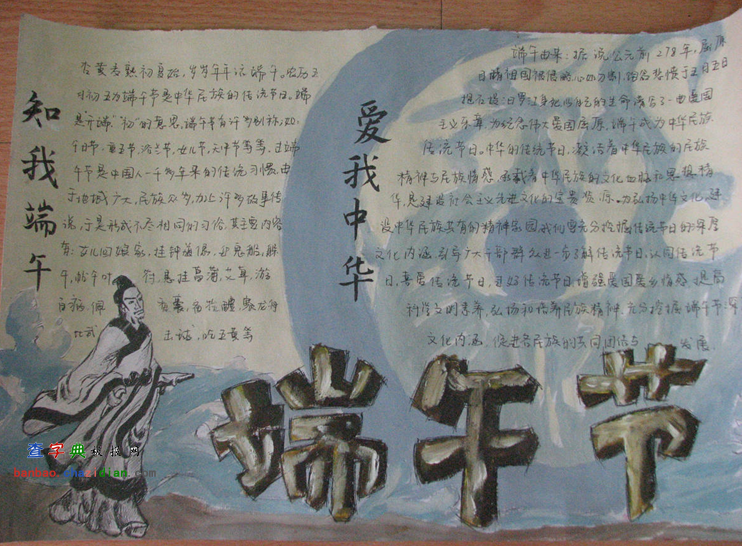 知我端午
杏黄杏熟初夏始，岁岁年年话端午。农历五
月初五为端午节是中华民族的传统节日。端
是"开端""初"的意思，端午节有许多别称，如：
午日节、重五节，浴兰节，女儿节，天中节等等，过端
午节是中国人二千多年来的传统习惯，由
于地域广大，民族众多，加上许多故事传
说，于是形成不尽相同的习俗，其主要内容
有：女儿回娘家，挂钟馗像，
午，悬挂菖蒲、艾草，游
佩香囊，赛龙舟
比武 击球，吃五黄等
爱我中华
端午由来：据说公元前278年，屈原
五月五日
抱石投汨罗江身死以自己的生命谱写了一曲爱国
主义乐章，为纪念伟大爱国屈原，端午成为中华民族
传统节日。中华的传统节日，凝结着中华民族的民族
精神与民族情感，承载着中华民族的文化血脉和思想精
华，是建设社会主义先进文化的宝贵资源，为弘扬中华文化，建
设中华民族共有的精神家园我们要充分挖掘传统节日的深厚
文化内涵，引导广大干部群众进一步了解传统节日，认同传统节
日、喜爱传统节日，过好传统节日增强爱国爱乡情感，提高
科学文明素养，弘扬和培养民族精神，充分挖掘端午节深
文化内涵，促进各民族的共同团结与发展
端午节
查字典 板报网
banbao.chazidian.com